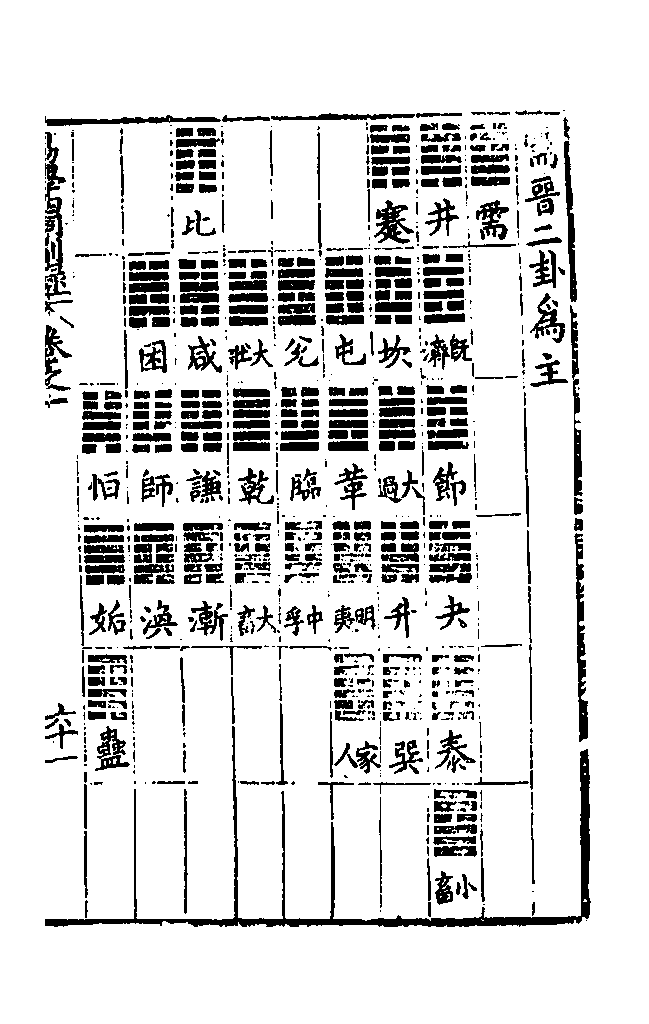 需晉二卦爲主
需
井 既濟 節 夬 泰 小畜
蹇 坎 大過 升 巽
屯 革 明夷 家人
兌 臨 中孚
大壯 乾 大畜
比 咸 謙 漸
困 師 渙
恒 姤 蠱
六十一